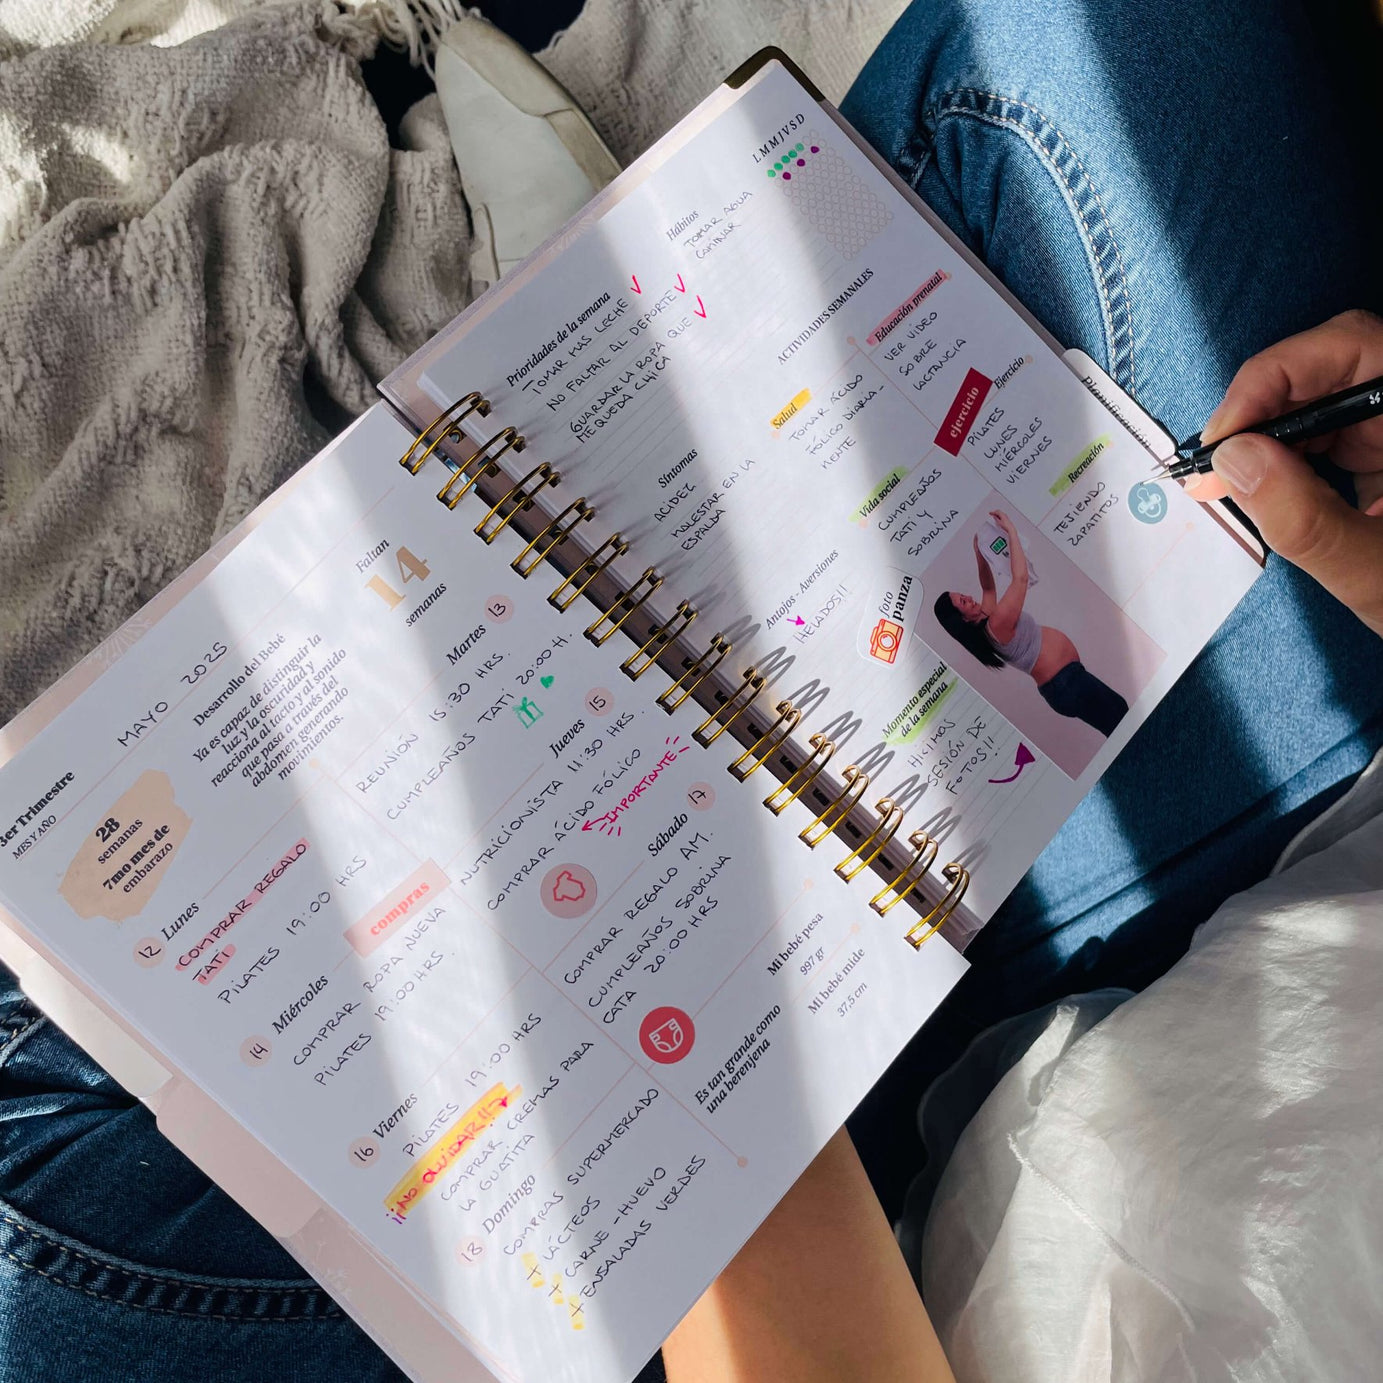 3er Trimestre
MES Y AÑO
MAYO 2025
28
semanas
7mo mes de
embarazo
Desarrollo del Bebé
Ya es capaz de distinguir la
luz y la oscuridad y
reacciona al tacto y al sonido
que pasa a través del
abdomen generando
movimientos.
Faltan
14
semanas
12 Lunes
COMPRAR REGALO
TATI
PILATES 19:00 HRS
Martes 13
REUNIÓN 15:30 HRS.
CUMPLEAÑOS TATI 20:00 H.
14 Miércoles
compras
COMPRAR ROPA NUEVA
PILATES 19:00 HRS.
Jueves 15
NUTRICIONISTA 11:30 HRS.
COMPRAR ÁCIDO FÓLICO
IMPORTANTE
16 Viernes
PILATES 19:00 HRS
¡¡NO OLVIDAR!!
COMPRAR CREMAS PARA
LA GUATITA
Sábado 17
COMPRAR REGALO AM.
CUMPLEAÑOS SOBRINA
CATA 20:00 HRS
18 Domingo
COMPRAS SUPERMERCADO
+ LÁCTEOS
+ CARNE - HUEVO
+ ENSALADAS VERDES
Mi bebé pesa
997 gr
Mi bebé mide
37,5 cm
Es tan grande como
una berenjena
Prioridades de la semana
TOMAR MAS LECHE
NO FALTAR AL DEPORTE
GUARDAR LA ROPA QUE
ME QUEDA CHICA
Hábitos
TOMAR AGUA
CAMINAR
L M M J V S D
Síntomas
ACIDEZ
MALESTAR EN LA
ESPALDA
Antojos - Aversiones
HELADOS!!
ACTIVIDADES SEMANALES
Salud
TOMAR ÁCIDO
FÓLICO DIARIA-
MENTE
Educación prenatal
VER VIDEO
SOBRE
LACTANCIA
Vida social
CUMPLEAÑOS
TATI Y
SOBRINA
ejercicio
Ejercicio
PILATES
LUNES
MIÉRCOLES
VIERNES
Recreación
TEJIENDO
ZAPATITOS
foto
panza
Momento especial
de la semana
HICIMOS
SESIÓN DE
FOTOS!!